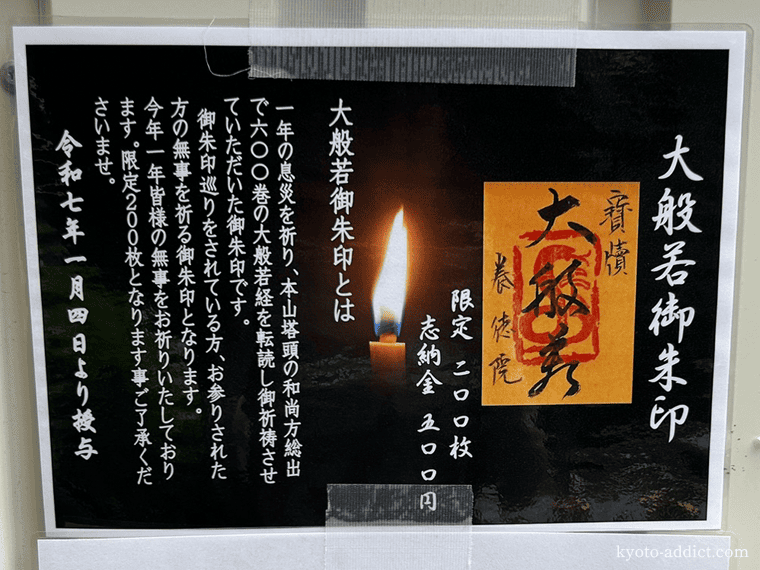 大般若御朱印
寶牘
大般若
養徳院
限定 二〇〇枚
志納金 五〇〇円
大般若御朱印とは
一年の息災を祈り、本山塔頭の和尚方総出
で六〇〇巻の大般若経を転読し御祈祷させ
ていただいた御朱印です。
御朱印巡りをされている方、お参りされた
方の無事を祈る御朱印となります。
今年一年皆様の無事をお祈りいたしており
ます。限定200枚となります事ご了承くだ
さいませ。
令和七年一月四日より授与
kyoto-addict.com